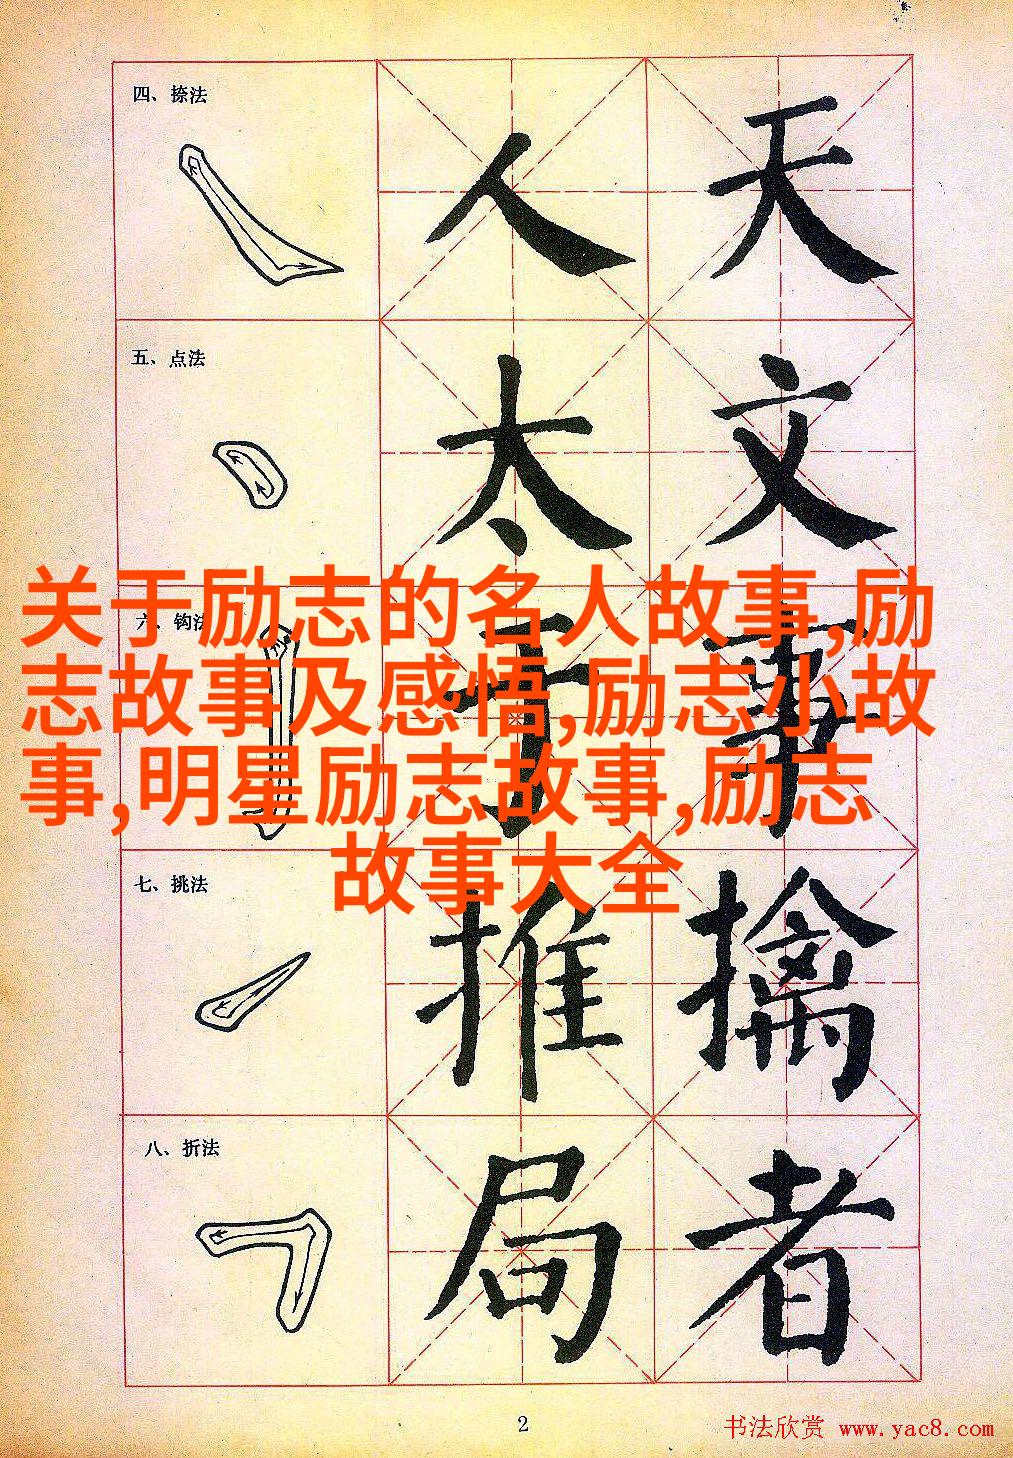 四、捺法
人 天
五、点法
太 文
关于励志的名人故事,励
志故事及感悟,励志小故
事,明星励志故事,励志
故事大全
六、钩法
于 事
七、挑法
推 擒
八、折法
局 者
2
书法欣赏 www.yac8.com